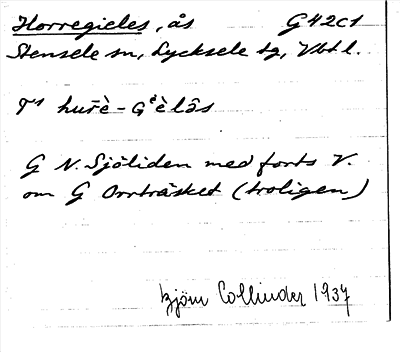 Horregieles, ås G42c1
Stensele sn, Lycksele lg, Vbtl.
hur̄è-Gᵉèlâs
G N. Sjöliden med forts V.
om G Orrträsket (troligen)
Björn Collinder 1937